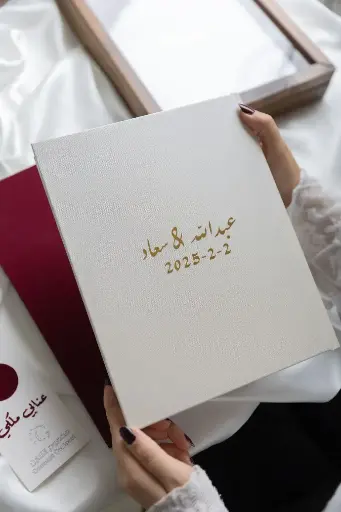 عبدالله & سعاد
2025-2-2
عنابي ملكي